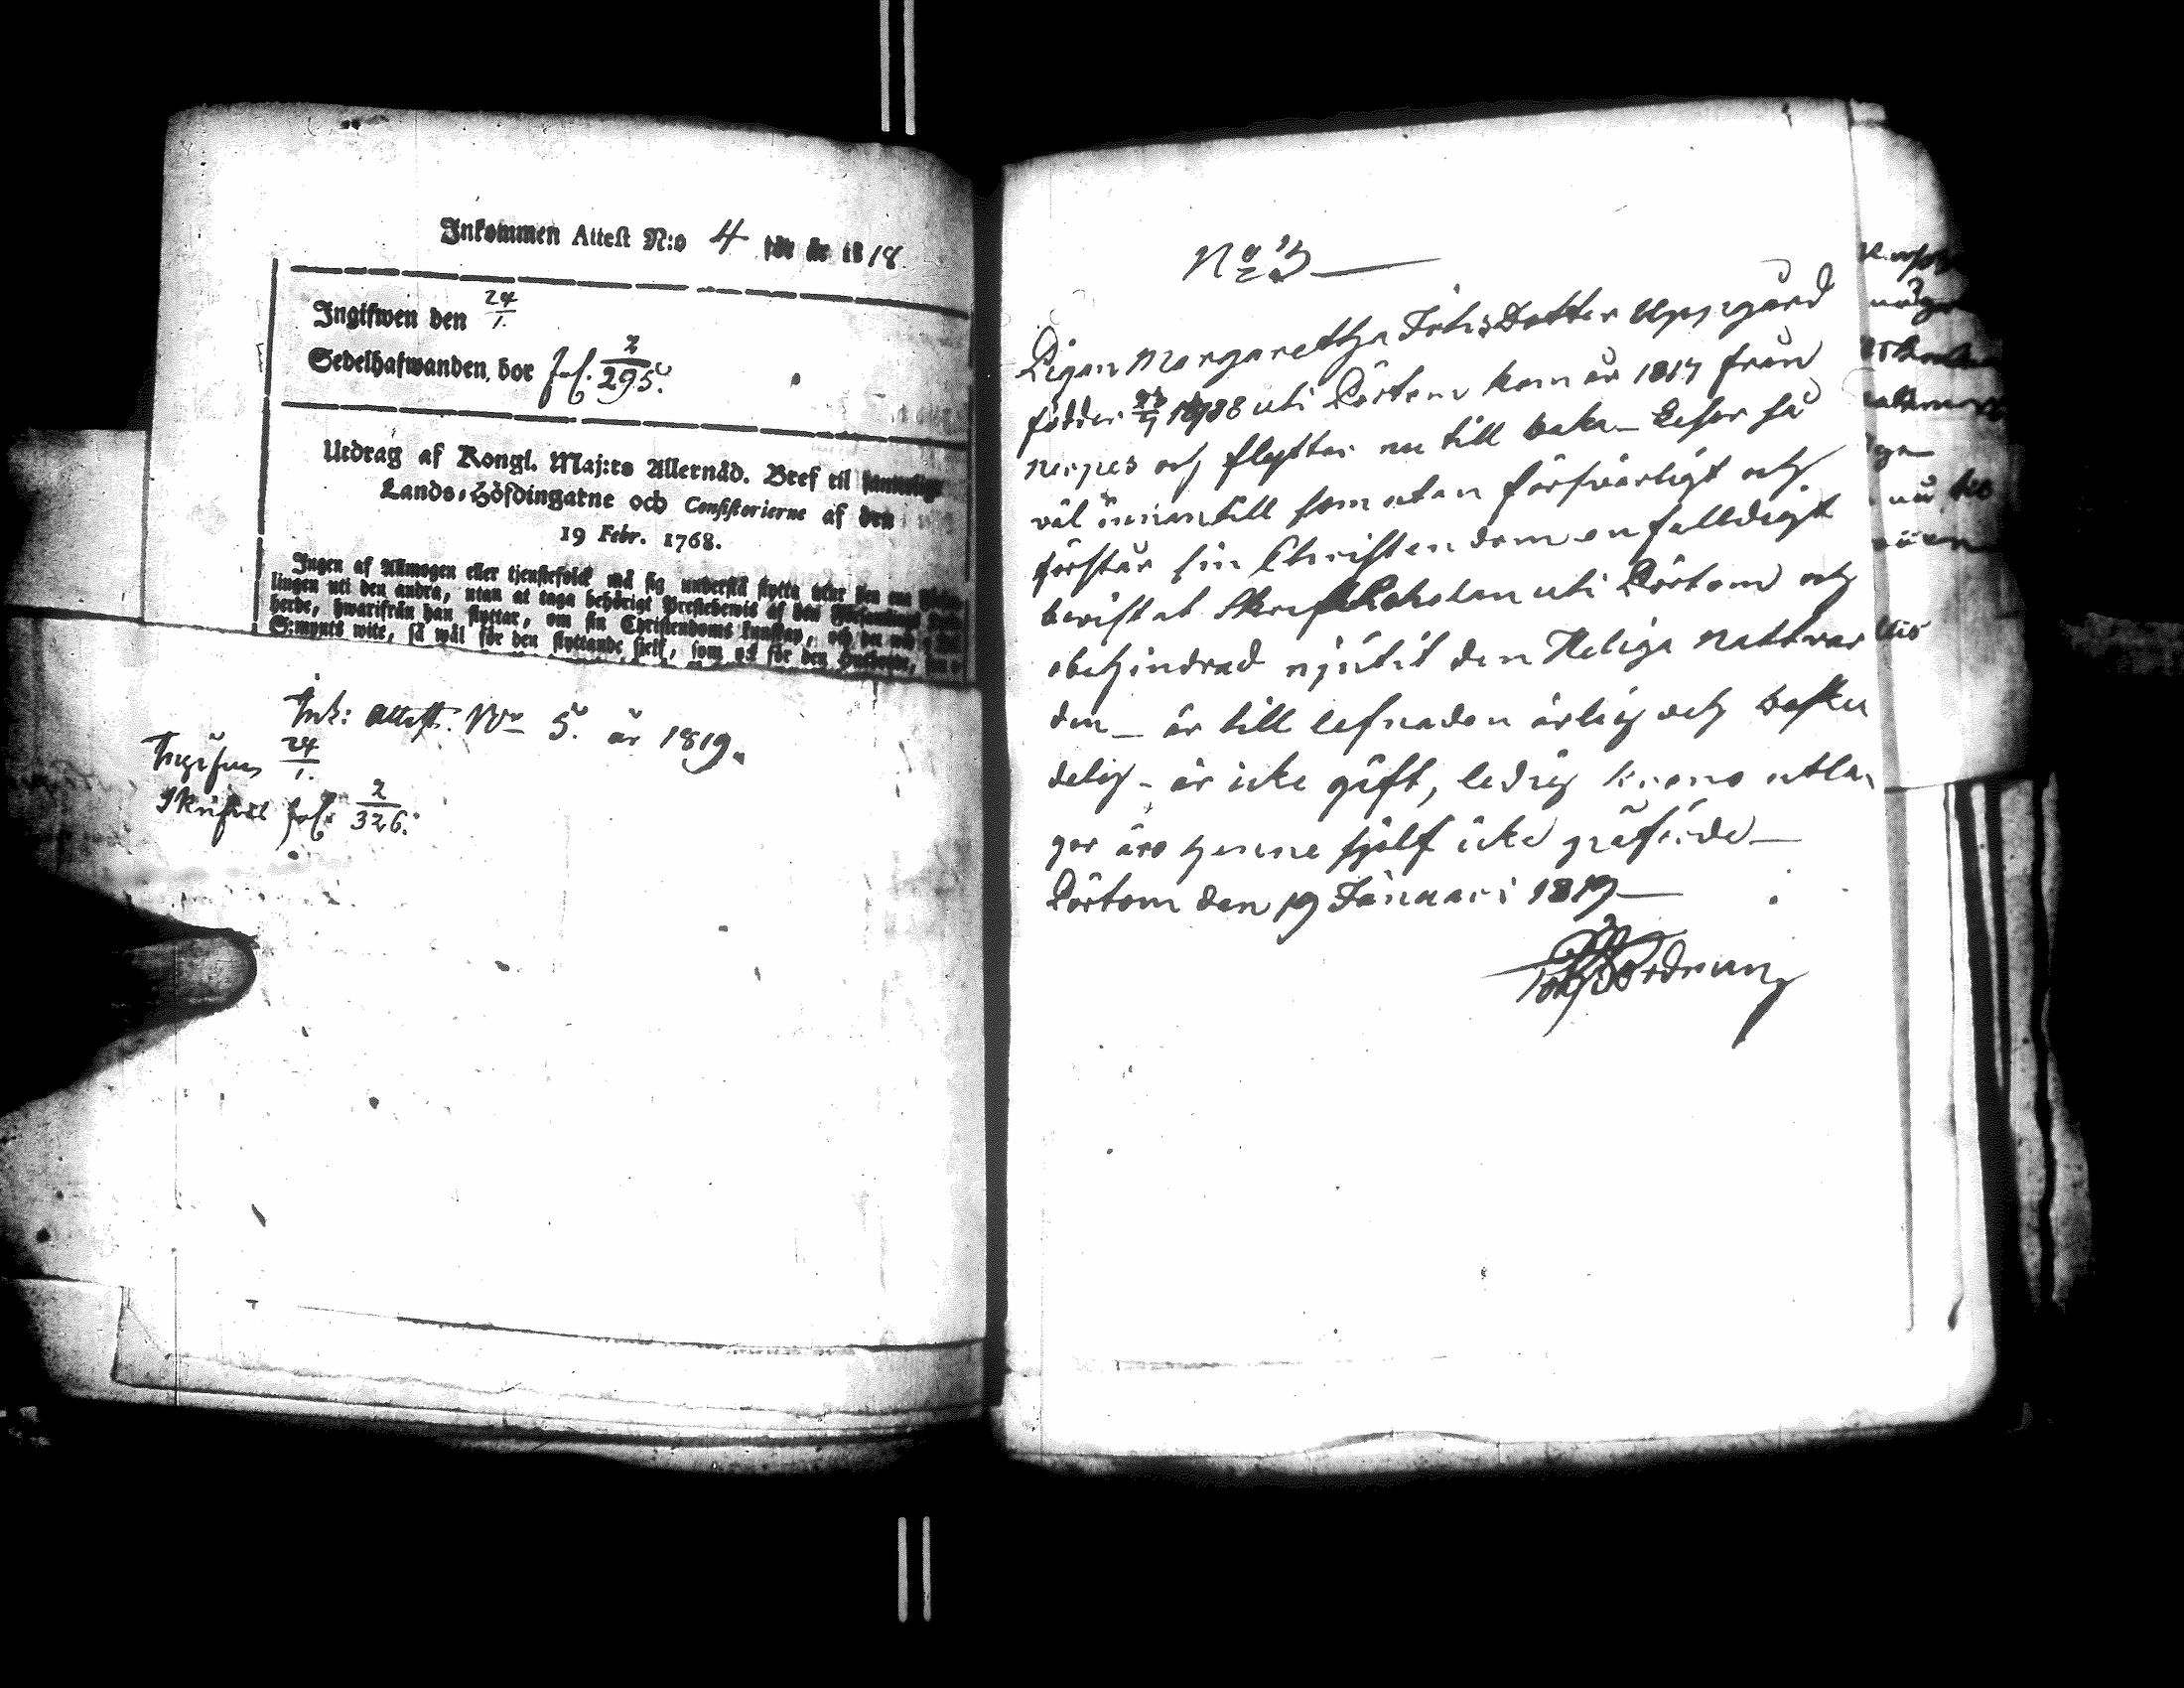 Inkommen Attest N:o 4 för år 1818
Ingifwen den 24/1.
Sedelhafwanden, bor fol. 2/295.
Utdrag af Kongl. Maj:ts Allernåd. Bref til samtelige
Lands-Höfdingarne och Consistorierne af den
19 Febr. 1768.
Ingen af Allmogen eller tjenstefolck må sig understå flytta utur den ena
lingen uti den andra, utan at taga behörigt Prestebewis af
herde, hwarifrån han flyttar, om sin Christendoms kunskap, och
S:mynts wite, så wäl för den flyttande sielf, som ock för den
Ink: Attest. No 5. år 1819.
Ingifven 24/1.
fol. 2/326.
No 3
Pigan Margaretha Johs Dotter Uppgård
födder 1788 uti Pörtom kom år 1817 från
Nerpes och flyttar nu till baka _ Läser så
väl innantill som utan försvarligt och
förstår sin Christendom enfalldigt
bevistat Skriftskolan uti Pörtom och
obehindrad njutit den Heliga Nattvar
den _ är till lefnaden ärlig och beske
delig _ är icke gift, ledig krono utla
gor äro henne sjelf icke påförde _
Pörtom den 19 Januari 1819